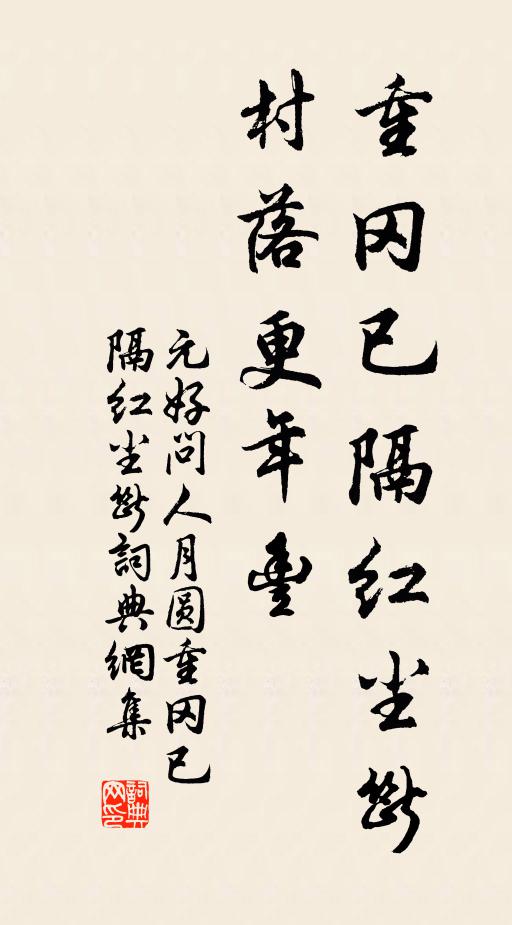 重冈已隔红尘断
村落更年豐
元好问人月圆重冈已
隔红尘断詞典網集
詞典
网印